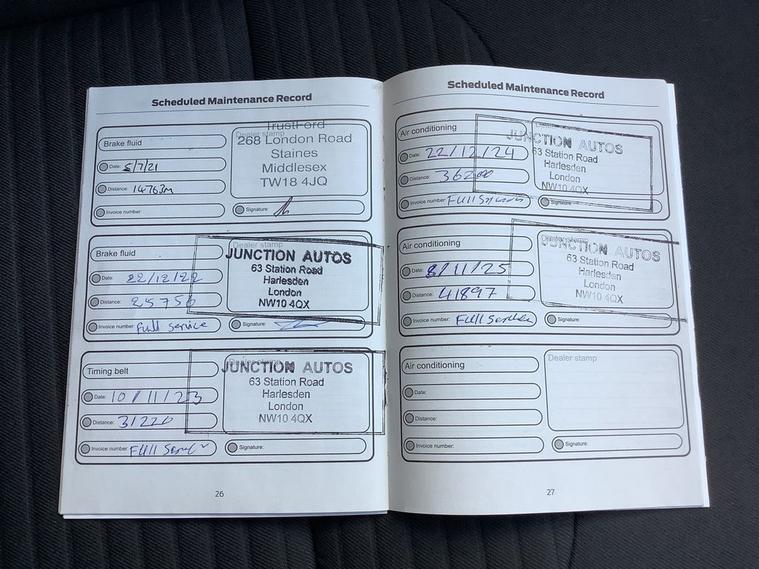 Scheduled Maintenance Record
Brake fluid
Dealer stamp
TrustFord
268 London Road
Staines
Middlesex
TW18 4JQ
Date: 5/7/21
Distance: 14763m
Invoice number:
Signature:
Brake fluid
Dealer stamp
JUNCTION AUTOS
63 Station Road
Harlesden
London
NW10 4QX
Date: 22/12/22
Distance: 25756
Invoice number: Full service
Signature:
Timing belt
Dealer stamp
JUNCTION AUTOS
63 Station Road
Harlesden
London
NW10 4QX
Date: 10/11/23
Distance: 31220
Invoice number: Full
Signature:
26
Scheduled Maintenance Record
Air conditioning
Dealer stamp
JUNCTION AUTOS
63 Station Road
Harlesden
London
NW10 4QX
Date: 22/12/24
Distance: 36200
Invoice number: Full
Signature:
Air conditioning
Dealer stamp
JUNCTION AUTOS
63 Station Road
Harlesden
London
NW10 4QX
Date: 8/11/25
Distance: 41897
Invoice number: Full
Signature:
Air conditioning
Dealer stamp
Date:
Distance:
Invoice number:
Signature:
27